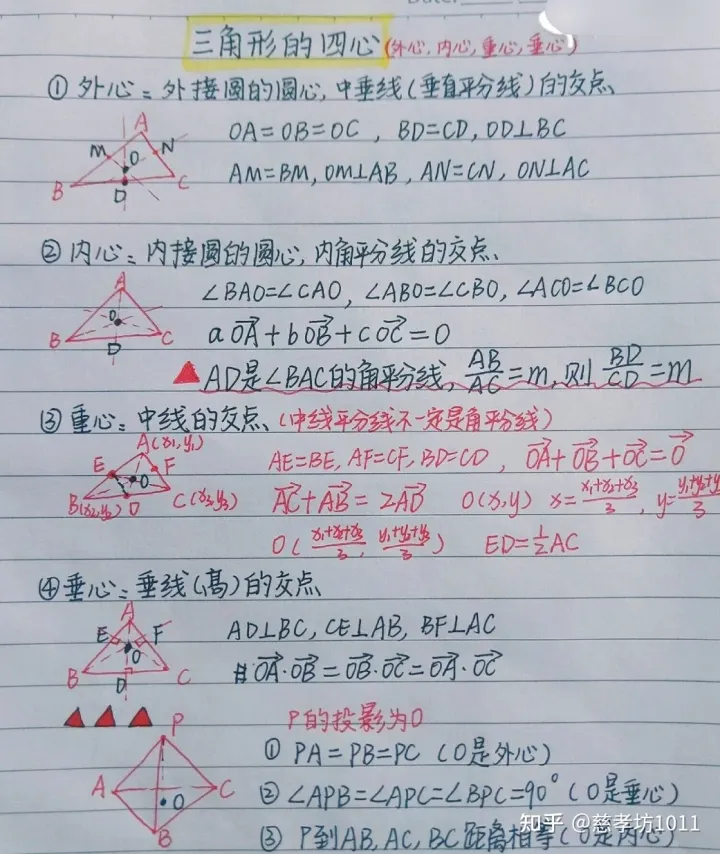 三角形的四心(外心,内心,重心,垂心)
① 外心:外接圆的圆心,中垂线(垂直平分线)的交点、
A
M O N
B D C
OA=OB=OC , BD=CD, OD⊥BC
AM=BM, OM⊥AB, AN=CN, ON⊥AC
② 内心:内接圆的圆心,内角平分线的交点、
A
O
B D C
∠BAO=∠CAO, ∠ABO=∠CBO, ∠ACO=∠BCO
aOA→+bOB→+cOC→=0
▲ AD是∠BAC的角平分线, AB/AC=m, 则 BD/CD=m
③ 重心:中线的交点、(中线平分线不一定是角平分线)
A(x₁,y₁)
E F
O
B(x₂,y₂) D C(x₃,y₃)
AE=BE, AF=CF, BD=CD, OA→+OB→+OC→=O→
AC→+AB→=2AD→ O(x,y) x=(x₁+x₂+x₃)/3, y=(y₁+y₂+y)/3
O((x₁+x₂+x₃)/3, (y₁+y₂+y₃)/3) ED=½AC
④ 垂心:垂线(高)的交点
A
E F
O
B D C
AD⊥BC, CE⊥AB, BF⊥AC
#OA→·OB→=OB→·OC→=OA→·OC→
▲▲▲ P的投影为O
P
A O C
B
① PA=PB=PC (O是外心)
② ∠APB=∠APC=∠BPC=90° (O是垂心)
③ P到AB, AC, BC距离相等(O是内心)
知乎 @慈孝坊1011